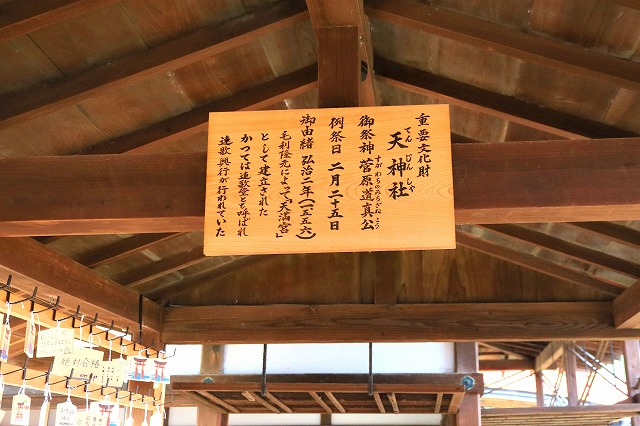 重要文化財
天神社
てんじんしゃ
御祭神 菅原道真公
すがわらのみちざねこう
例祭日 二月二十五日
御由緒 弘治二年(一五五六)
毛利隆元によって「天満宮」
として建立された
かつては連歌堂とも呼ばれ
連歌興行が行われていた
絶対合格